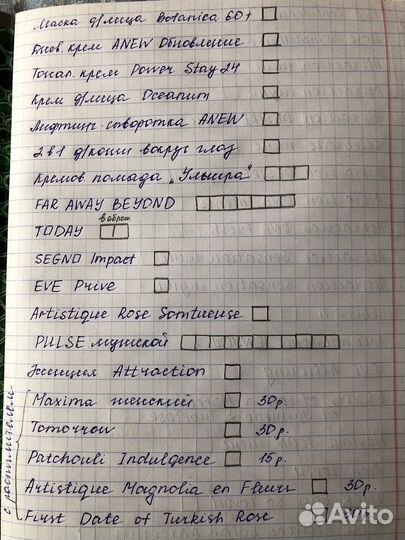 Маска д/лица Botanica 60+
Тонал. крем ANEW Обновление
Тонал. крем Power Stay 24
Крем д/лица Oceanum
Лифтинг-сыворотка ANEW
2 в 1 д/кожи вокруг глаз
Кремов. помада „Ультра"
FAR AWAY BEYOND
TODAY
SEGNO Impact
EVE Prive
Artistique Rose Somtueuse
PULSE мужской
Attraction
с распылителем
Maxima женский 30р.
Tomorrow 30р.
Patchouli Indulgence 15р.
Artistique Magnolia en Fleurs 30р.
First Date of Turkish Rose
Avito